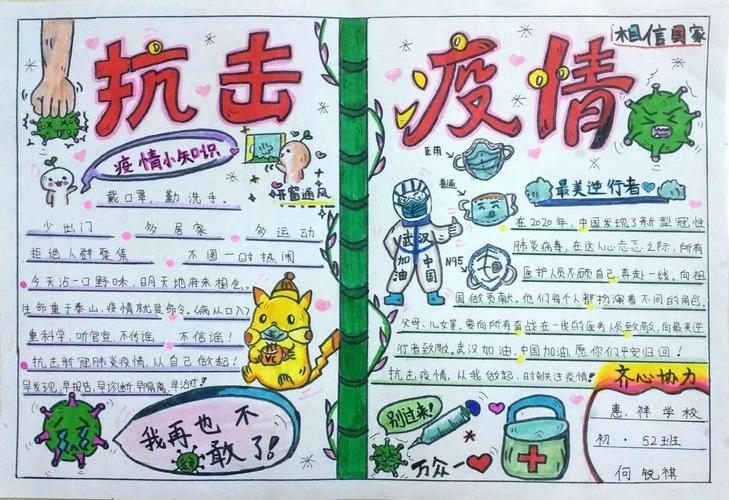 抗击
疫情小知识
开窗通风
戴口罩，勤洗手。
少出门 多居家 多运动
拒绝人群聚集 不图一时热闹
今天沾一口野味，明天地府来相会。
生命重于泰山，疫情就是命令。《病从口入》
重科学，听官宣，不传谣 不信谣！
抗击新冠肺炎疫情，从自己做起！
早发现，早报告，早诊断，早隔离，早治疗！
我再也不
敢了！
疫情
相信国家
医用
普通
N95
武汉
加油
中国
最美逆行者
在2020年，中国发现了新型冠性
肺炎病毒，在这人心忘忘之际，所有
医护人员不顾自己，奔赴一线。向祖
国做贡献。他们每个人都扮演着不同的角色。
父母，儿女等。要向所有奋战在一线的医务人员致敬，向最美逆
行者致敬。武汉加油，中国加油，愿你们平安归回！
抗击疫情，从我做起，时刻关注疫情！
别过来！
万众一
齐心协力
惠祥学校
初·52班
何锐祺